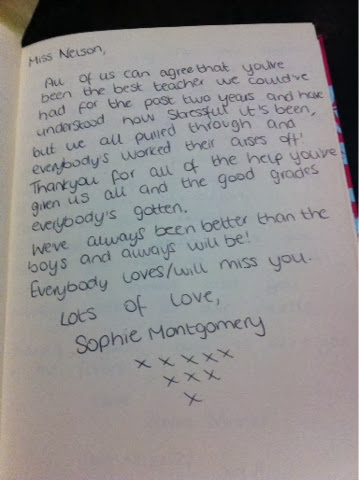 Miss Nelson,
All of us can agree that you've
been the best teacher we could've
had for the past two years and have
understood how stressful it's been,
but we all pulled through and
everybody's worked their arses off!
Thankyou for all of the help you've
given us all and the good grades
everybody's gotten.
We've always been better than the
boys and always will be!
Everybody loves/will miss you.
Lots of love,
Sophie Montgomery
x x x x x
x x x
x